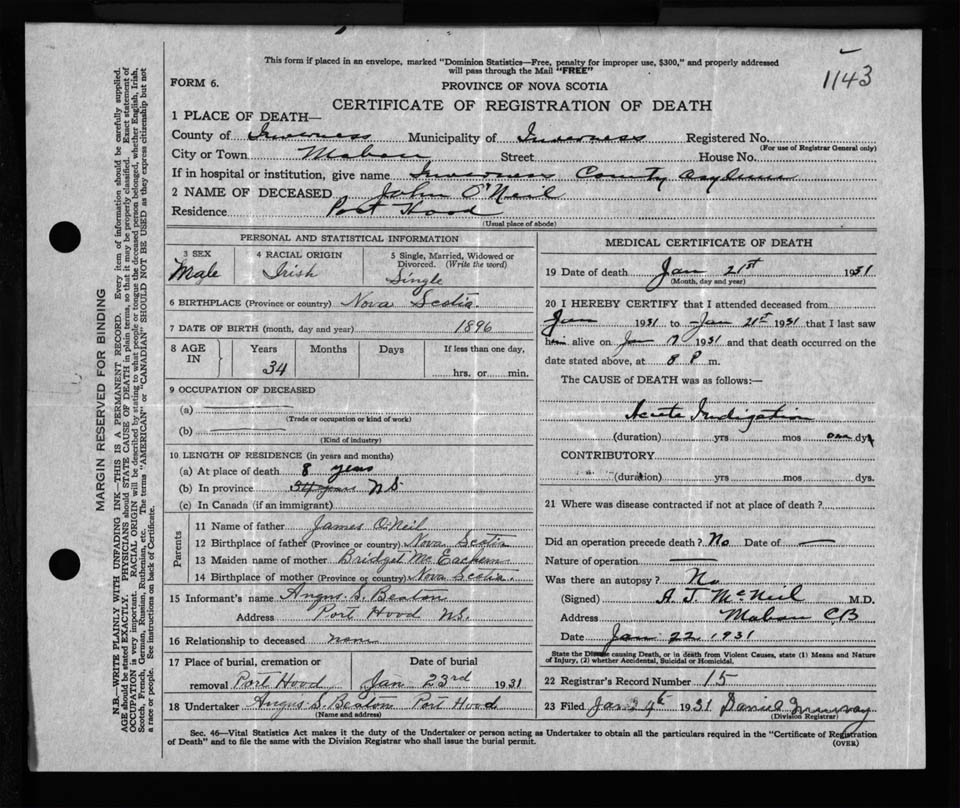 This form if placed in an envelope, marked "Dominion Statistics—Free, penalty for improper use, $300," and properly addressed
will pass through the Mail "FREE"
1143
FORM 6.
PROVINCE OF NOVA SCOTIA
CERTIFICATE OF REGISTRATION OF DEATH
1 PLACE OF DEATH—
County of Inverness Municipality of Inverness Registered No.
(For use of Registrar General only)
City or Town Mabou Street House No.
If in hospital or institution, give name Inverness County Asylum
2 NAME OF DECEASED John O'Neil
Residence Port Hood
(Usual place of abode)
PERSONAL AND STATISTICAL INFORMATION
3 SEX
Male
4 RACIAL ORIGIN
Irish
5 Single, Married, Widowed or
Divorced. (Write the word)
Single
6 BIRTHPLACE (Province or country) Nova Scotia
7 DATE OF BIRTH (month, day and year) 1896
8 AGE
IN
Years Months Days If less than one day,
34 hrs. or min.
9 OCCUPATION OF DECEASED
(a)
(Trade or occupation or kind of work)
(b)
(Kind of industry)
10 LENGTH OF RESIDENCE (in years and months)
(a) At place of death 8 years
(b) In province 34 years NS
(c) In Canada (if an immigrant)
Parents
11 Name of father James O'Neil
12 Birthplace of father (Province or country) Nova Scotia
13 Maiden name of mother Bridget McEachern
14 Birthplace of mother (Province or country) Nova Scotia.
15 Informant's name Angus S. Beaton
Address Port Hood NS.
16 Relationship to deceased none
17 Place of burial, cremation or Date of burial
removal Port Hood Jan 23rd 1931
18 Undertaker Angus S. Beaton Port Hood
(Name and address)
MEDICAL CERTIFICATE OF DEATH
19 Date of death Jan 21st 1931
(Month, day and year)
20 I HEREBY CERTIFY that I attended deceased from
Jan 1931 to Jan 21st 1931 that I last saw
him alive on Jan 7 1931 and that death occurred on the
date stated above, at 8 P m.
The CAUSE of DEATH was as follows:—
Acute Indigestion
(duration) yrs mos one dys
CONTRIBUTORY
(duration) yrs mos dys
21 Where was disease contracted if not at place of death?
Did an operation precede death? No Date of —
Nature of operation —
Was there an autopsy? No
(Signed) A. J. McNeil M.D.
Address Mabou CB
Date Jan 22 1931
State the Disease causing Death, or in death from Violent Causes, state (1) Means and Nature
of Injury, (2) whether Accidental, Suicidal or Homicidal.
22 Registrar's Record Number 15
23 Filed Jan 24th 1931 Daniel
(Division Registrar)
Sec. 46—Vital Statistics Act makes it the duty of the Undertaker or person acting as Undertaker to obtain all the particulars required in the "Certificate of Registration
of Death" and to file the same with the Division Registrar who shall issue the burial permit.
(OVER)
MARGIN RESERVED FOR BINDING
N.B.—WRITE PLAINLY WITH UNFADING INK—THIS IS A PERMANENT RECORD. Every item of information should be carefully supplied.
AGE should be stated EXACTLY. PHYSICIANS should STATE CAUSE OF DEATH in plain terms, so that it may be properly classified. Exact statement of
OCCUPATION is very important. RACIAL ORIGIN will be described by stating to what people or tongue the deceased person belonged, whether English, Irish,
Scotch, French, German, Russian, Ruthenian, etc. The terms "AMERICAN" or "CANADIAN" SHOULD NOT BE USED as they express citizenship but not
a race or people. See instructions on back of Certificate.